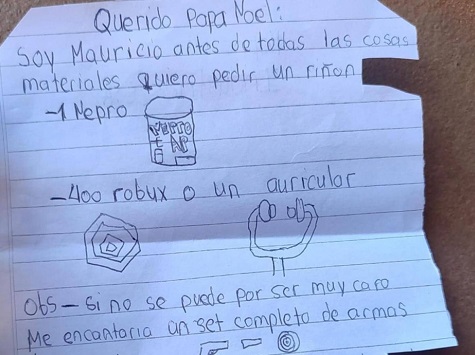 Querido Papa Noel:
Soy Mauricio antes de todas las cosas
materiales quiero pedir un riñon
-1 Nepro
-400 robux o un auricular
Obs- si no se puede por ser muy caro
Me encantaria un set completo de armas